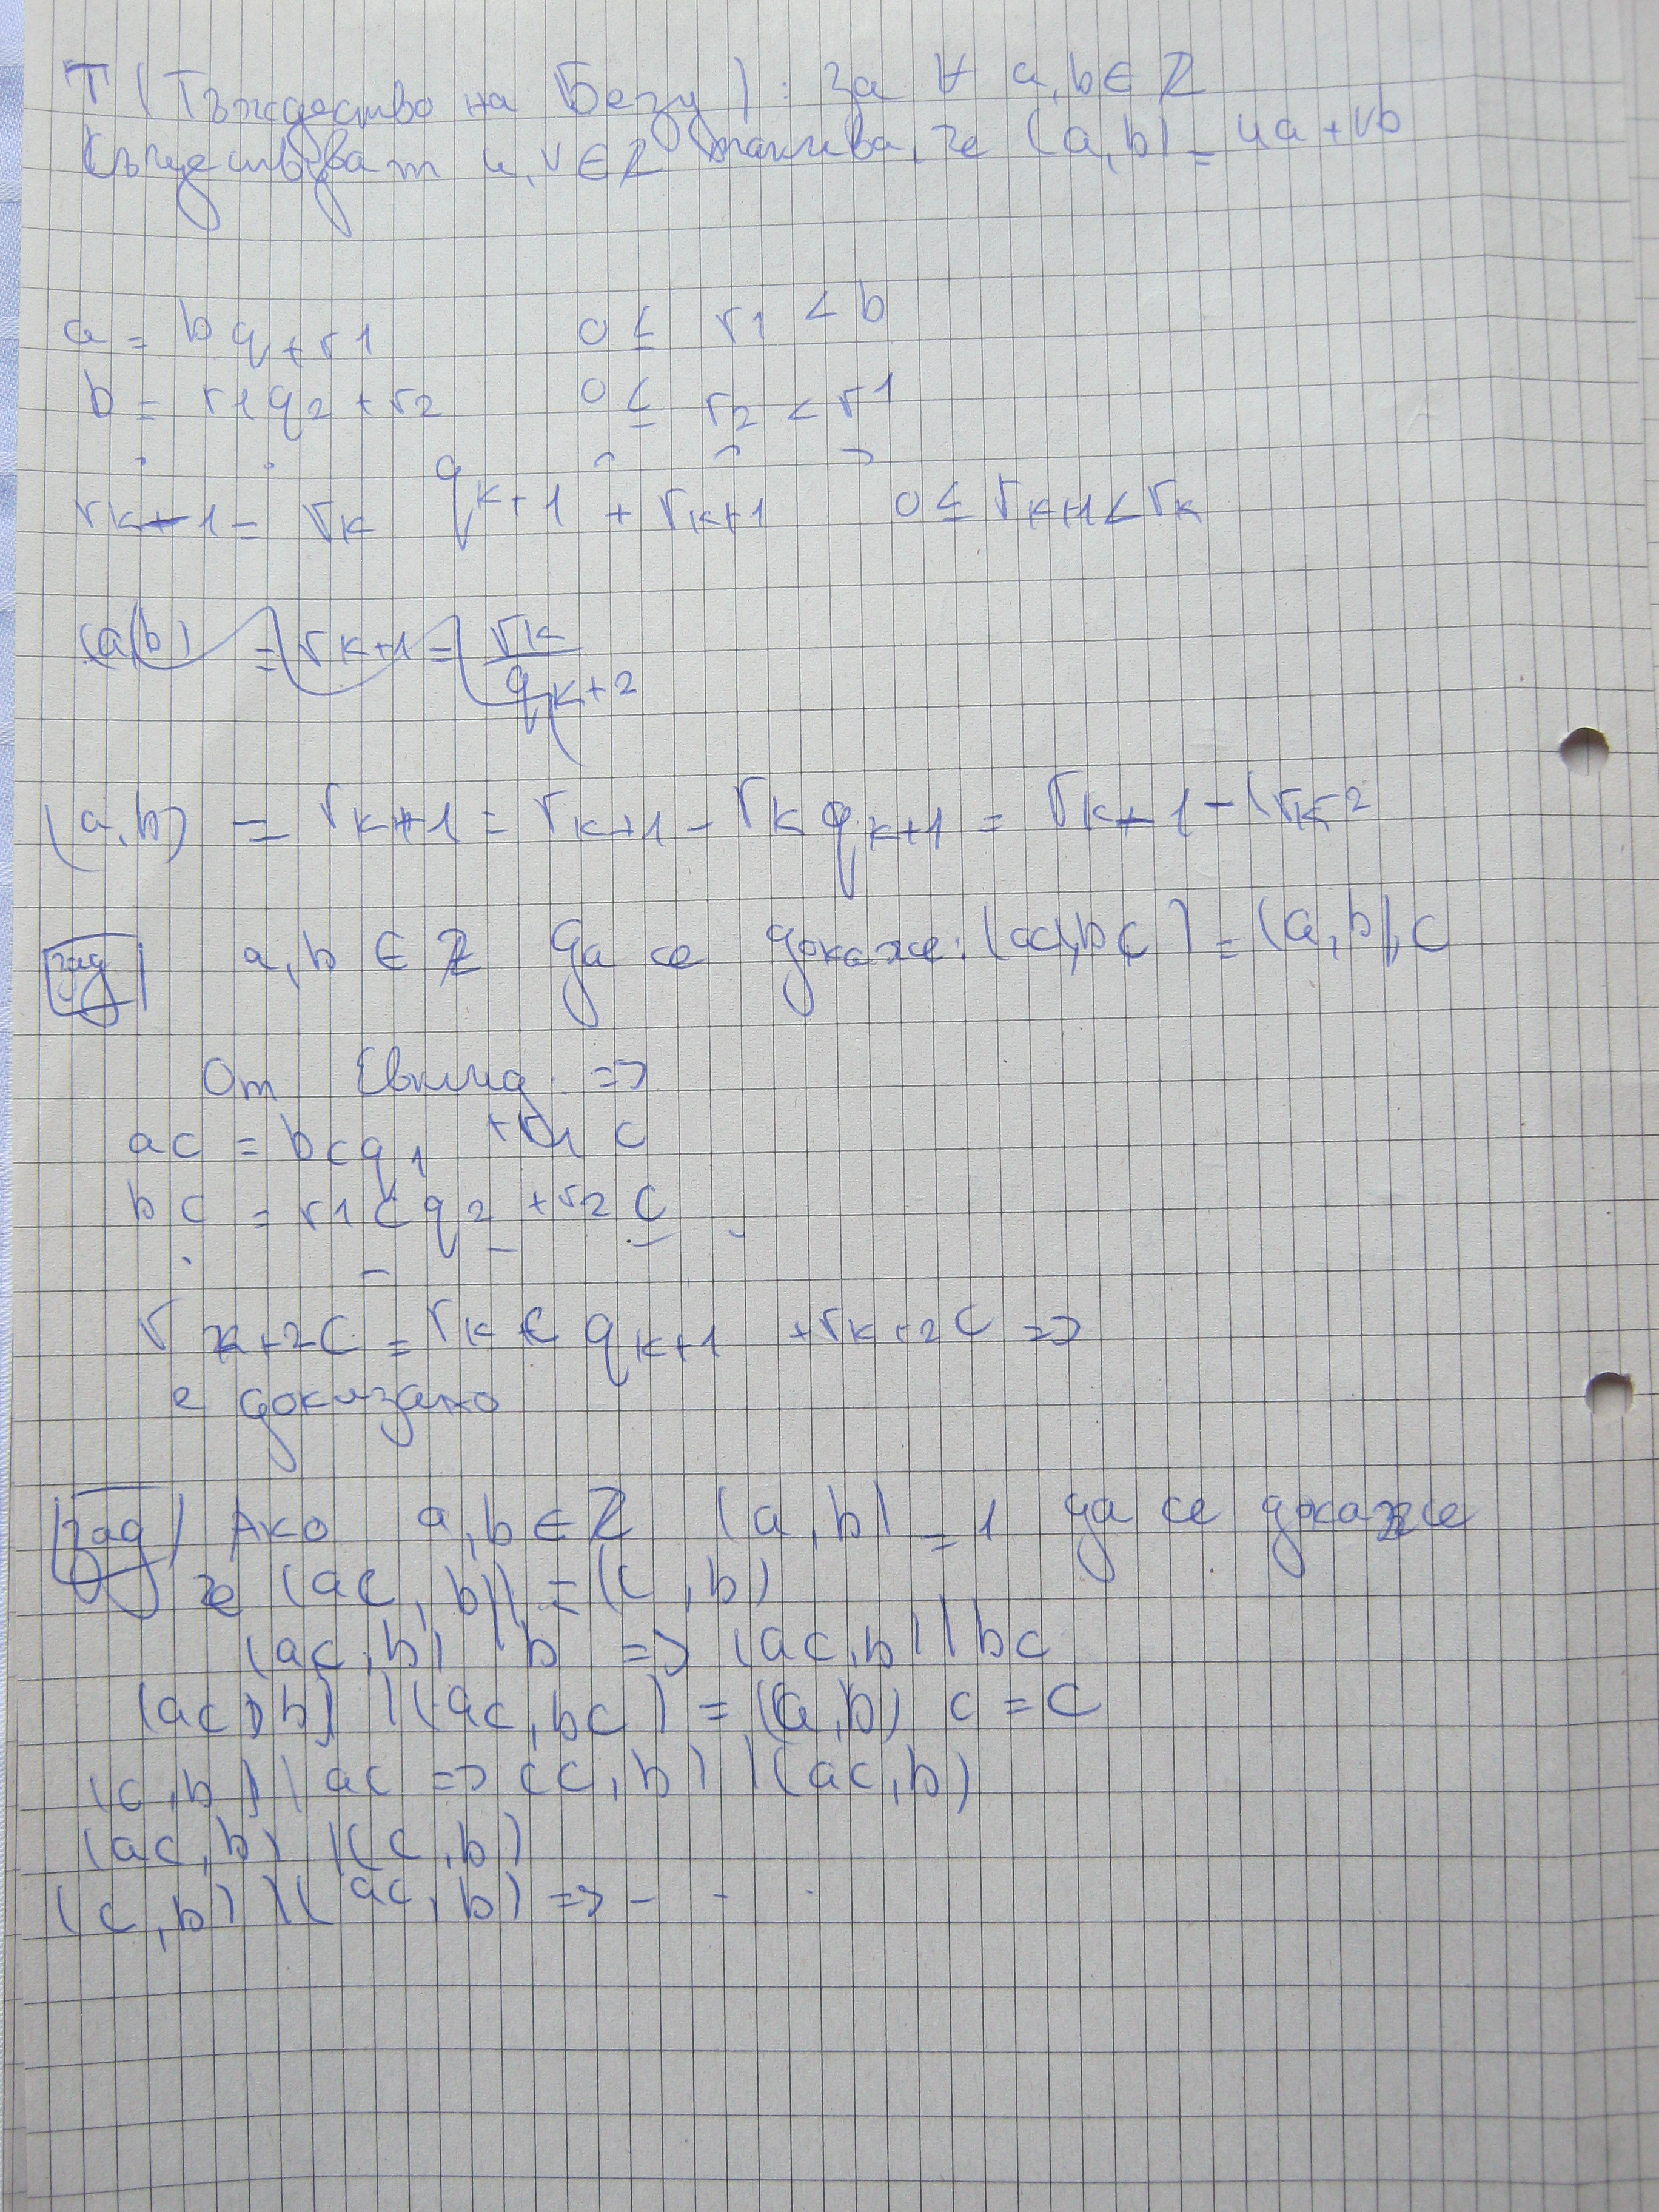 Т (Тъждество на Безу): За ∀ a, b ∈ ℤ
Съществуват u, v ∈ ℤ такива, че (a, b) = ua + vb
a = bq + r1 0 ≤ r1 < b
b = r1q2 + r2 0 ≤ r2 < r1
. . . . .
rk-1 = rk qk+1 + rk+1 0 ≤ rk+1 < rk
(a,b) = rk+1 = rk / qk+2
(a,b) = rk+1 = rk+1 - rk qk+1 = rk-1 - (rk-2
зад a, b ∈ ℤ Да се докаже: (ac, bc) = (a, b).c
От Евклид =>
ac = bcq1 + r1 c
bc = r1cq2 + r2c
. - - - -
rk+2c = rk c qk+1 + rk+2c =>
е доказано
зад Ако a, b ∈ ℤ (a, b) = 1 да се докаже
че (ac, b) = (c, b)
(ac, b) | b => (ac, b) | bc
(ac, b) | (ac, bc) = (a, b) c = c
(c, b) | ac => (c, b) | (ac, b)
(ac, b) | (c, b)
(c, b) | (ac, b) => - - .